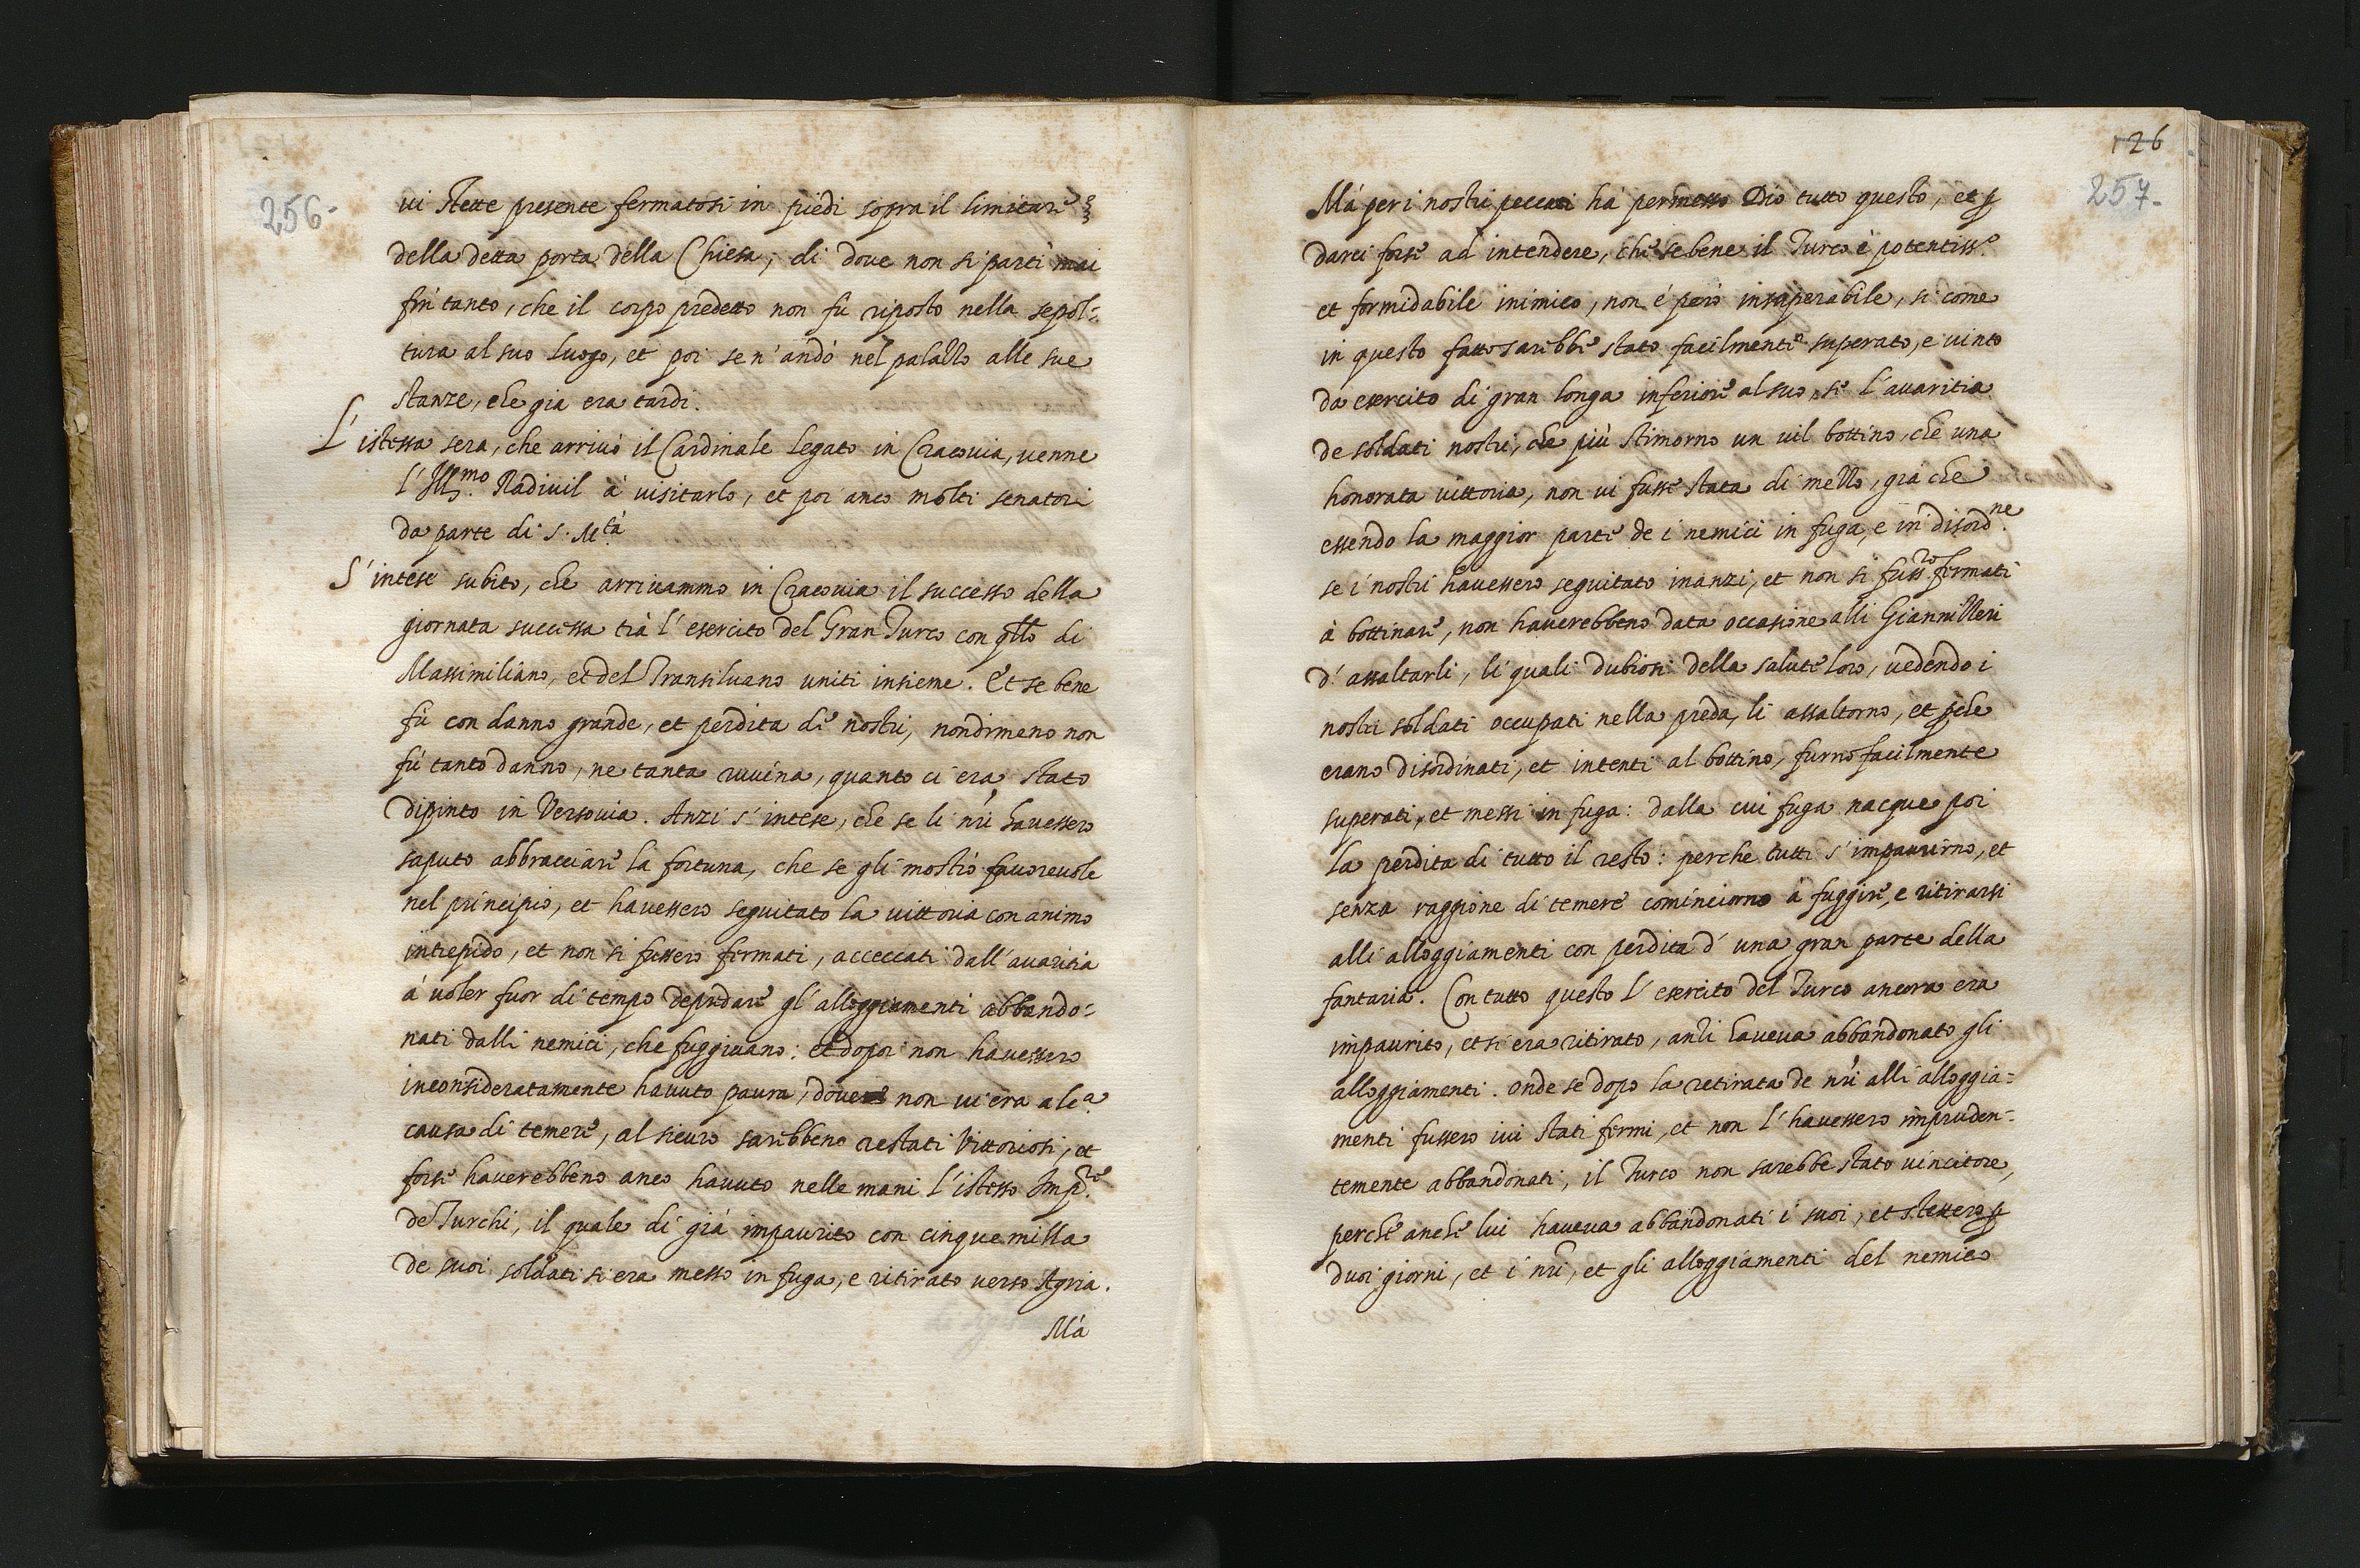 256.
vi stette presente fermatosi in piedi sopra il limitare
della detta porta della Chiesa, di dove non si partì mai
fin tanto, che il corpo predetto non fù riposto nella sepol=
tura al suo luogo, et poi se n'andò nel palazzo alle sue
stanze, che già era tardi.
L'istessa sera, che arrivò il Cardinale legato in Cracovia, venne
l'Ill.mo Radivil à visitarlo, et poi anco molti senatori
da parte di S. M.tà
S'intese subito, che arrivammo in Cracovia il successo della
giornata successa trà l'esercito del Gran Turco con qllo di
Massimiliano, et del Transilvano uniti insieme. Et se bene
fù con danno grande, et perdita de nostri, nondimeno non
fù tanto danno, ne tanta ruuina, quanto ci era stato
dipinto in Versovia. Anzi s'intese, che se li nri havessero
saputo abbracciare la fortuna, che se gli mostrò favorevole
nel principio, et havessero seguitato la vittoria con animo
intrepido, et non si fussero fermati, acceccati dall'avaritia
à voler fuor di tempo depredare gl'alloggiamenti abbando=
nati dalli nemici, che fuggivano: et dopoi non havessero
inconsideratamente havuto paura, dove non vi era alc.a
causa di temere, al sicuro sarebbeno restati vittoriosi, et
forse haverebbeno anco havuto nelle mani l'istesso Imp.re
de Turchi, il quale di già impaurito con cinque milla
de suoi soldati si era messo in fuga, e ritirato verso Agria.
Mà
126
257.
Mà per i nostri peccati hà permesso Dio tutto questo, et p
darci forse ad intendere, che se bene il Turco è potentiss.o
et formidabile inimico, non è però insuperabile, si come
in questo fatto sarebbe stato facilmente superato, e vinto
da esercito di gran longa inferiore al suo, se l'avaritia
de soldati nostri, che più stimorno un vil bottino, che una
honorata vittoria, non vi fusse stata di mezzo, già che
essendo la maggior parte de i nemici in fuga, e in disord.ne
se i nostri havessero seguitato inanzi, et non si fuss.ro fermati
à bottinare, non haverebbeno data occasione alli Giannizzeri
d'assaltarli, li quali dubiosi della salute loro, vedendo i
nostri soldati occupati nella preda, li assaltorno, et pche
erano disordinati, et intenti al bottino, furno facilmente
superati, et messi in fuga: dalla cui fuga nacque poi
la perdita di tutto il resto: perche tutti s'impaurirno, et
senza raggione di temere cominciorno à fuggire, e ritirarsi
alli alloggiamenti con perdita d'una gran parte della
fantaria. Con tutto questo l'esercito del Turco ancora era
impaurito, et si era ritirato, anzi haveva abbandonato gli
alloggiamenti. onde se dopo la retirata de nri alli alloggia=
menti fussero ivi stati fermi, et non l'havessero impruden=
temente abbandonati, il Turco non sarebbe stato vincitore,
perche anche lui haveva abbandonati i suoi, et stettero p
duoi giorni, et i nri, et gli alloggiamenti del nemico